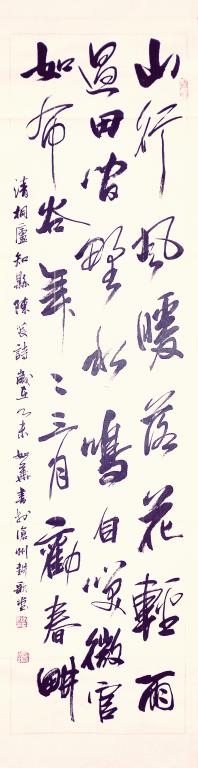 山行風暖落花輕雨
過田間野水鳴自笑微官
如布谷年〻三月勸春畊
清桐廬知縣陳萇詩歲在乙未如華書於滄州耕歌堂